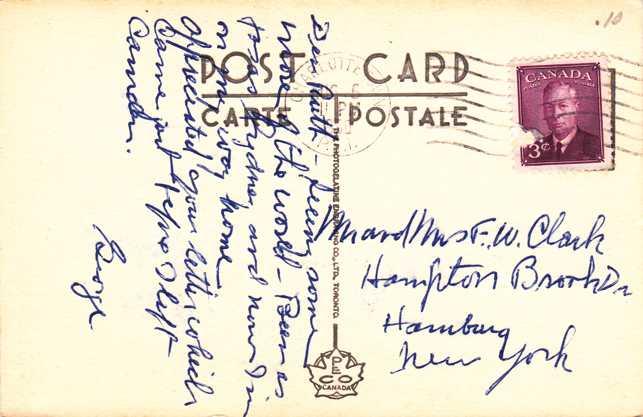 .10
POST CARD
CARTE POSTALE
CANADA
3¢
CHARLOTTETOWN
THE PHOTOGELATINE ENGRAVING CO., LTD. TORONTO.
PECO
CANADA
Dear Ruth - Seeing some
more of the world - Been as
far as Sydney and now I'm
on my way home
Appreciated your letter which
came just before I left
Camden.
George
Mr and Mrs F. W. Clark
Hampton Brook Dr
Hamburg
New York